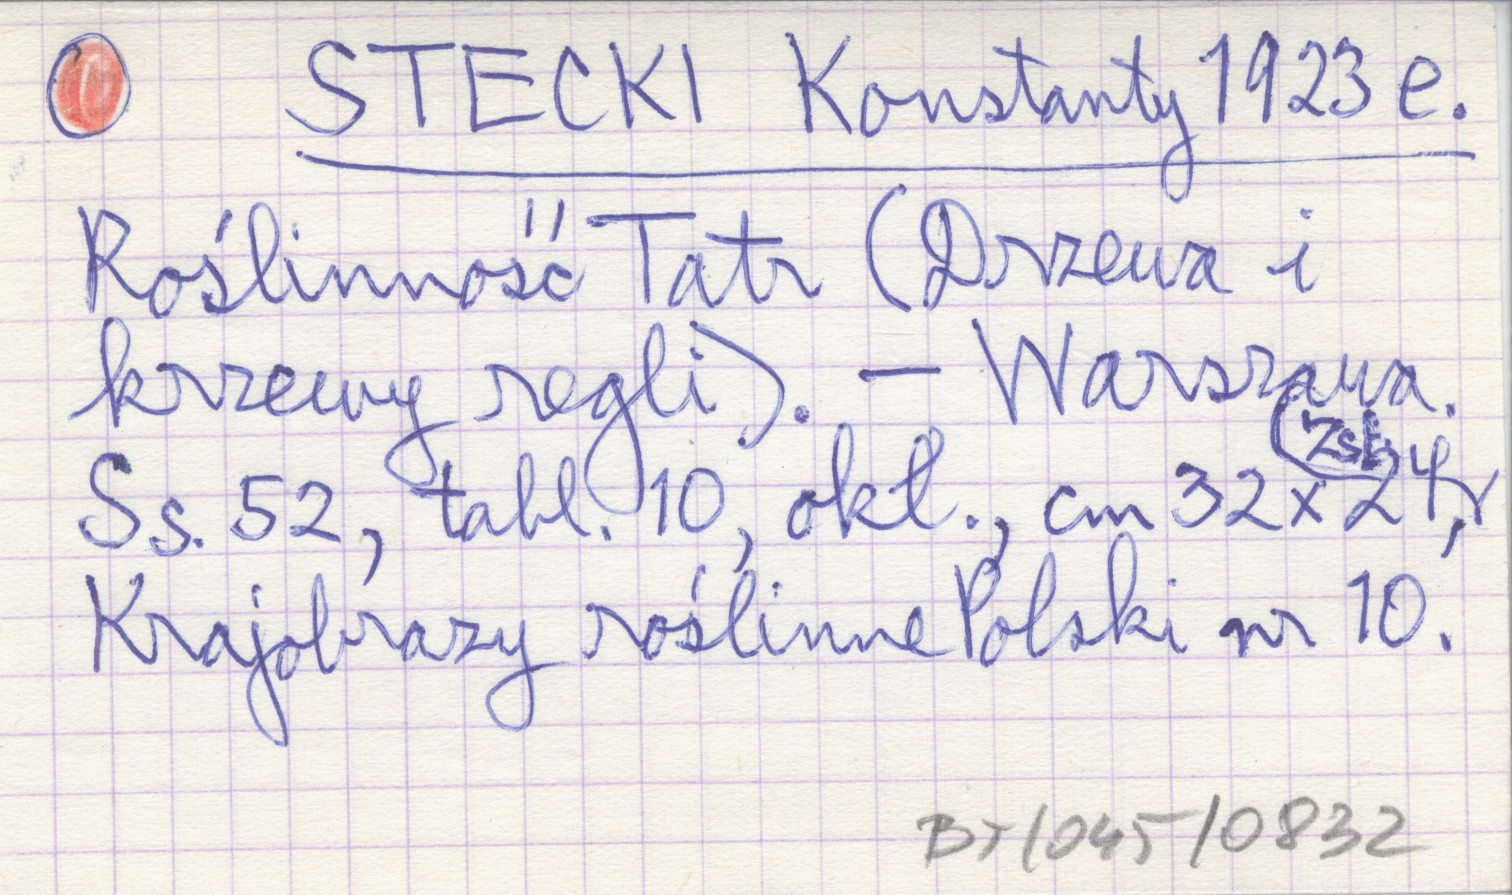 STECKI Konstanty 1923 e.
Roślinność Tatr (Drzewa i
krzewy regli). – Warszawa.
(Zst.)
Ss. 52, tabl. 10, okł., cm 32x24,
Krajobrazy roślinne Polski nr 10.
BT/045/0832